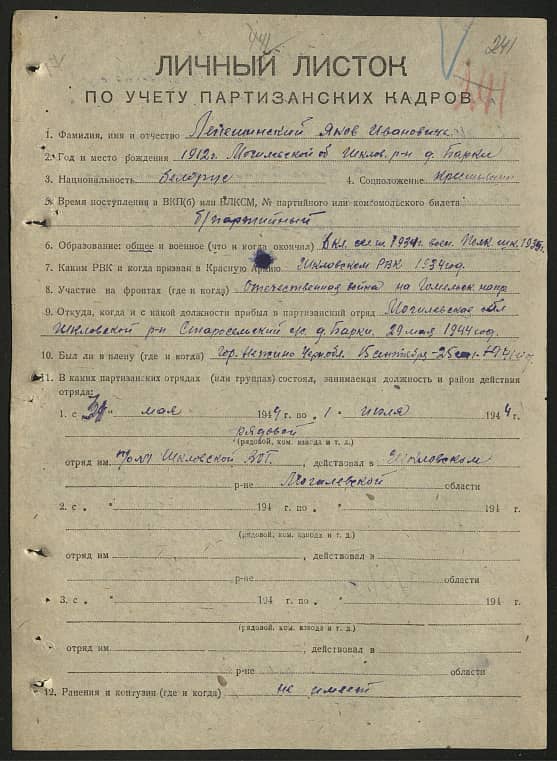 441
241
241
ЛИЧНЫЙ ЛИСТОК
ПО УЧЕТУ ПАРТИЗАНСКИХ КАДРОВ
1. Фамилия, имя и отчество Лепешинский Яков Иванович
2. Год и место рождения 1912 г. Могилевской об Шклов. р-н д. Барки
3. Национальность белорус 4. Соцположение
5. Время поступления в ВКП(б) или ВЛКСМ, № партийного или комсомольского билета
б/партийный
6. Образование: общее и военное (что и когда окончил)
7. Каким РВК и когда призван в Красную Армию Шкловском РВК 1934 год.
8. Участие на фронтах (где и когда) Отечественная война на Гомельск напр
9. Откуда, когда и с какой должности прибыл в партизанский отряд Могилевская обл
Шкловской р-н Старосельский с/с. д. Барки. 29 мая 1944 год.
10. Был ли в плену (где и когда) гор. Нежино Черноб.
11. В каких партизанских отрядах (или группах) состоял, занимаемая должность и район действия
отряда:
1. с „ мая 1944 г. по „ 1 " июля 1944 г.
рядовой
(рядовой, ком. взвода и т. д.)
отряд им. Шкловской , действовал в Шкловском
р-не Могилевской области
2. с „ " 194 г. по „ " 194 г.
(рядовой, ком. взвода и т. д.)
отряд им. , действовал в
р-не области
3. с „ " 194 г. по „ " 194 г.
(рядовой, ком. взвода и т. д.)
отряд им. , действовал в
р-не области
12. Ранения и контузии (где и когда) не имеет